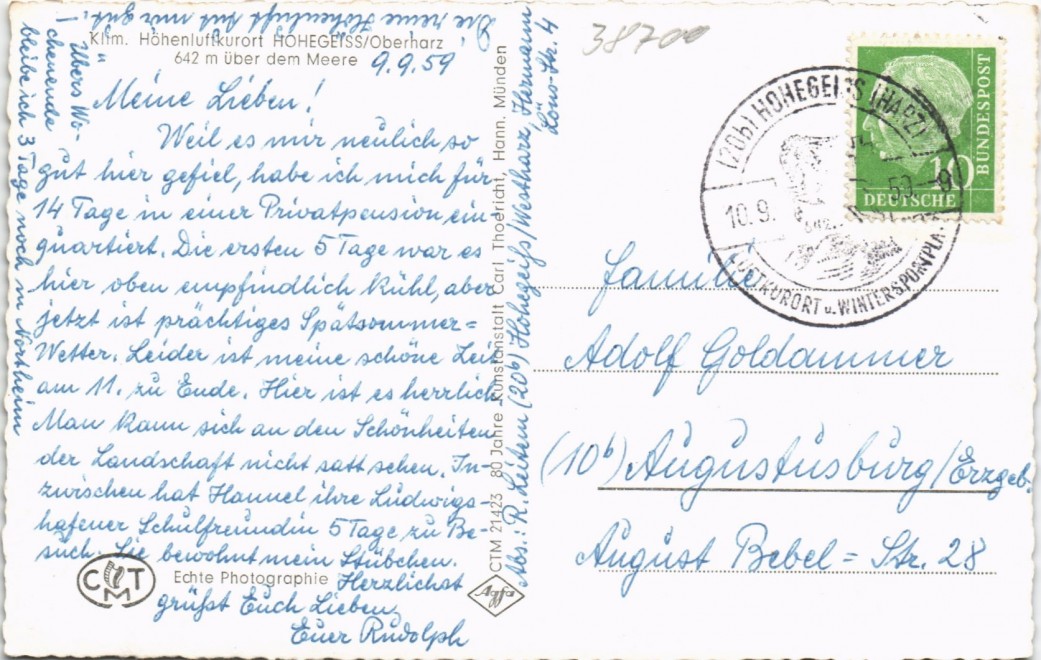 Die reine Höhenluft tut mir gut!
Klim. Höhenluftkurort HOHEGEISS/Oberharz
642 m über dem Meere
9.9.59
Meine Lieben!
Weil es mir neulich so
gut hier gefiel, habe ich mich für
14 Tage in einer Privatpension ein-
quartiert. Die ersten 5 Tage war es
hier oben empfindlich kühl, aber
jetzt ist prächtiges Spätsommer=
Wetter. Leider ist meine schöne Zeit
am 11. zu Ende. Hier ist es herrlich
Man kann sich an den Schönheiten
der Landschaft nicht satt sehen. In-
zwischen hat Hannel ihre Ludwigs-
hafener Schulfreundin 5 Tage zu Be-
such. Sie bewohnt mein Stübchen.
Herzlichst
grüßt Euch Lieben,
Euer Rudolph
Übers Wo-
chenende
bleibe ich 3 Tage noch in Northeim
CTM
Echte Photographie
CTM 21423 80 Jahre Kunstanstalt Carl Thoericht, Hann. Münden
Agfa
Abs.: R. Leitem (20b) Hohegeiß/Westharz, Hermann
Löns-Str. 4
38700
(20b) HOHEGEISS (HARZ)
10.9.
LUFTKURORT u. WINTERSPORTPLA
10
DEUTSCHE
BUNDESPOST
Familie
Adolf Goldammer
(10b) Augustusburg/Erzgeb.
August Bebel=Str. 28